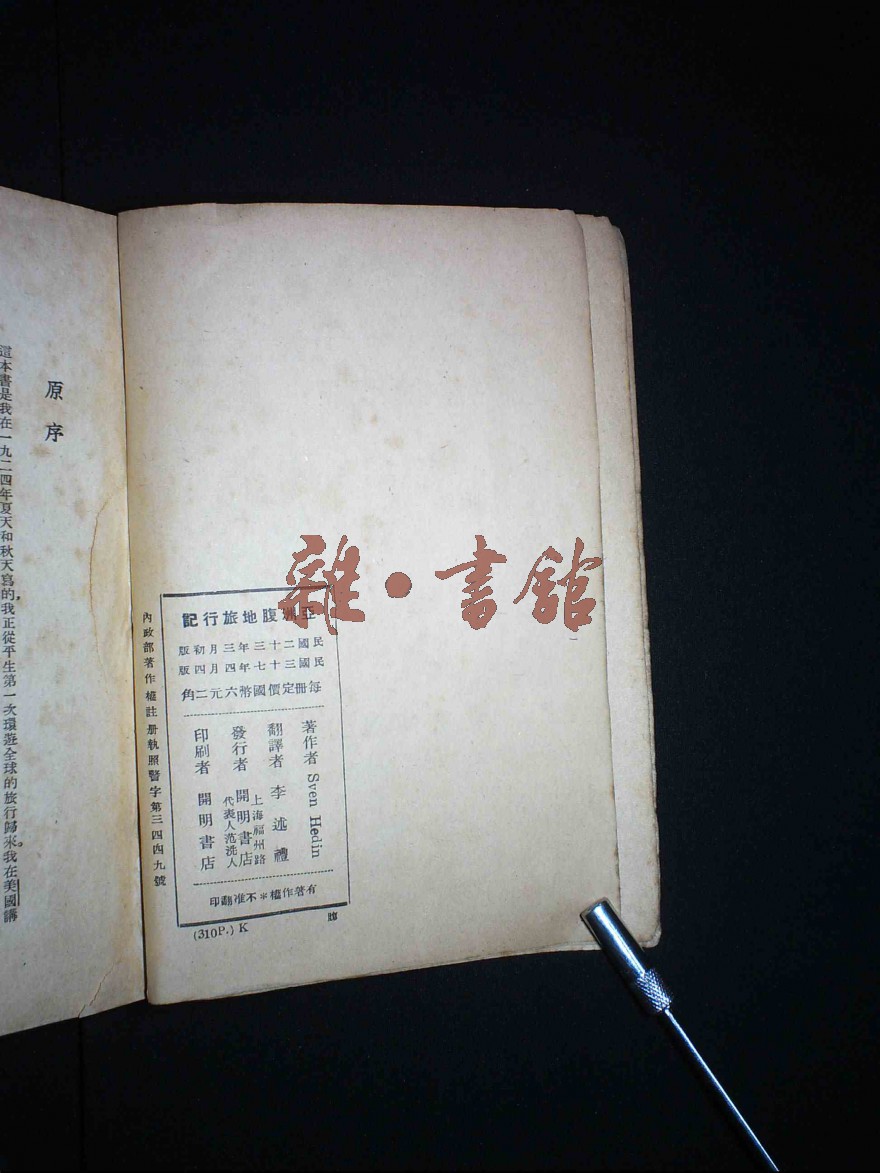 亞洲腹地旅行記
民國二十三年三月初版
民國三十七年四月四版
每冊定價國幣六元二角
著作者 Sven Hedin
翻譯者 李述禮
發行者 開明書店
上海福州路
代表人范洗人
印刷者 開明書店
有著作權*不准翻印
(310P.) K
內政部著作權註冊執照警字第三四四九號
原序
這本書是我在一九二四年夏天和秋天寫的,我正從平生第一次環遊全球的旅行歸來。我在美國講
雜·書館